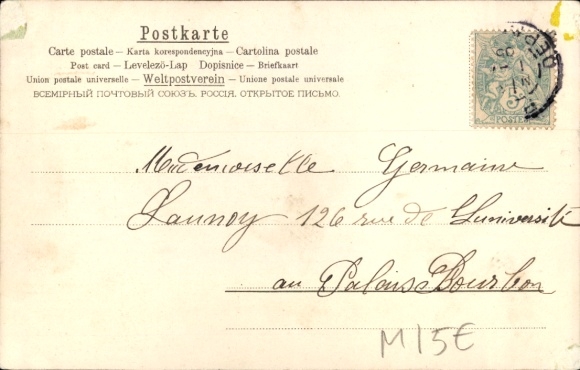 Postkarte
Carte postale – Karta korespondencyjna – Cartolina postale
Post card – Levelező-Lap Dopisnice – Briefkaart
Union postale universelle – Weltpostverein – Unione postale universale
ВСЕМІРНЫЙ ПОЧТОВЫЙ СОЮЗЪ. РОССІЯ. ОТКРЫТОЕ ПИСЬМО.
5
POSTES
Mademoiselle Germaine
Launoy 126 rue de L'université
au Palais Bourbon
M15E